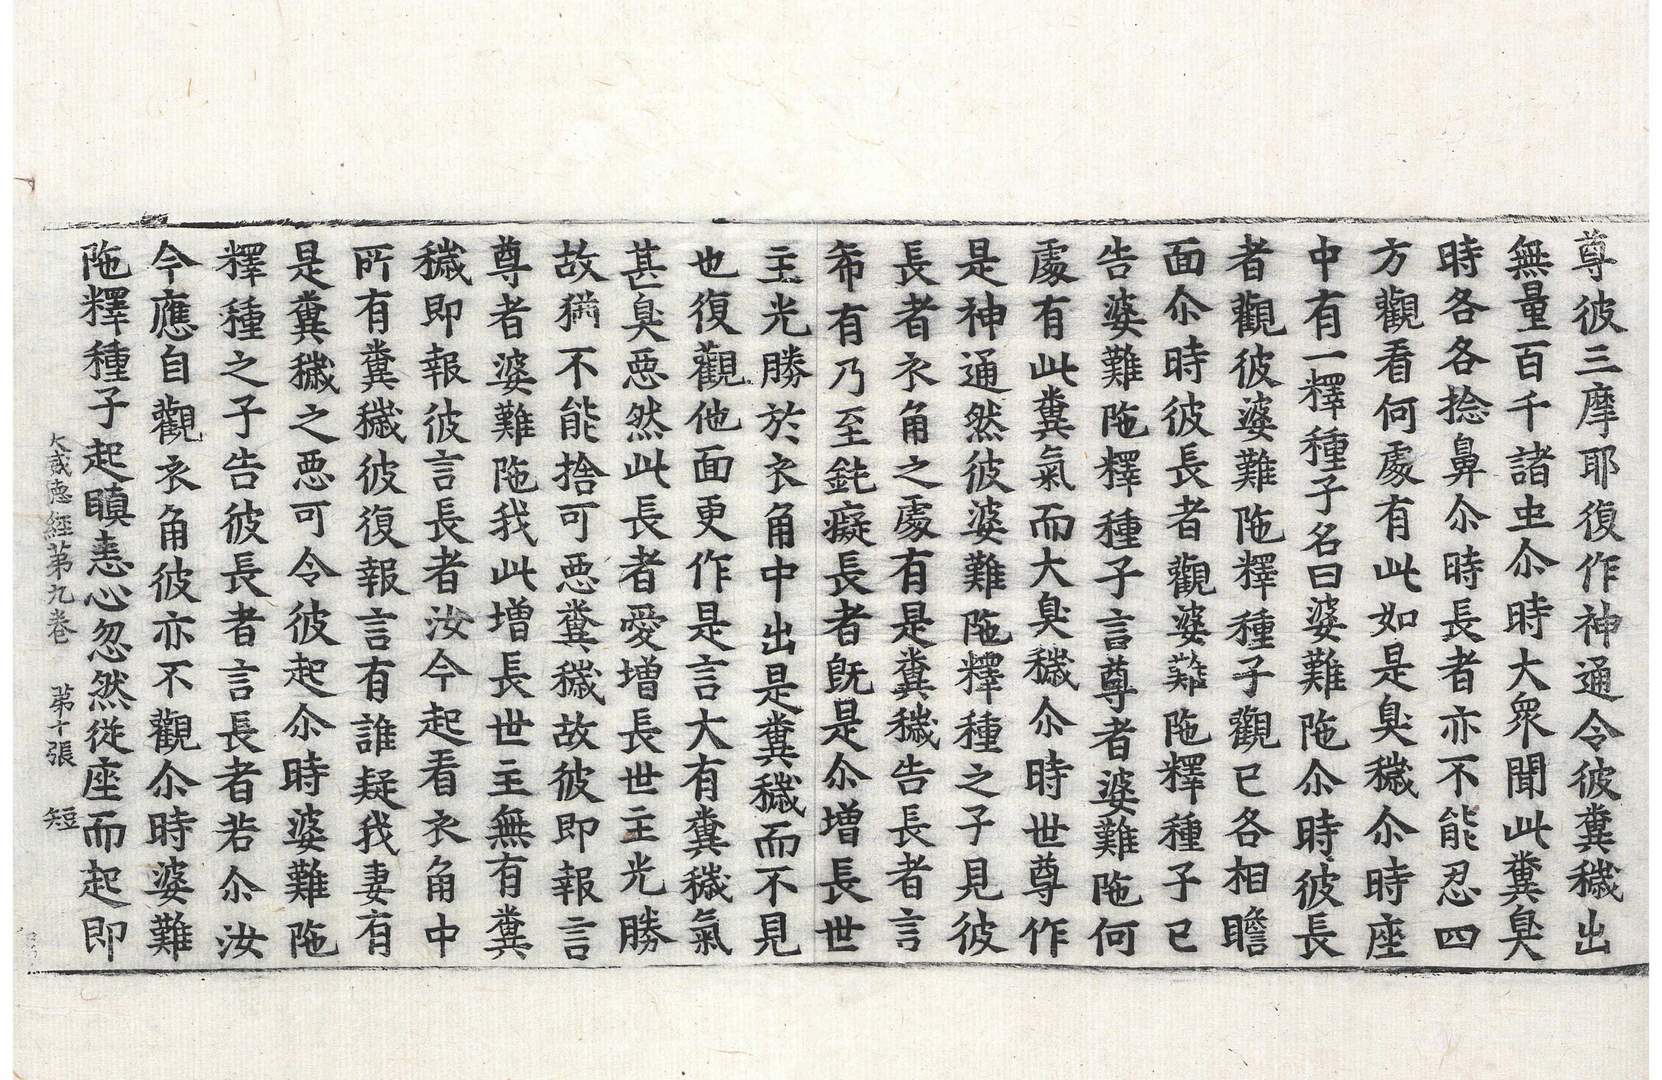 尊彼三摩耶復作神通令彼糞穢出
無量百千諸虫尒時大衆聞此糞臭
時各各捻鼻尒時長者亦不能忍四
方觀看何處有此如是臭穢尒時座
中有一釋種子名曰婆難陁尒時彼長
者觀彼婆難陁釋種子觀已各相瞻
面尒時彼長者觀婆難陁釋種子已
告婆難陁釋種子言尊者婆難陁何
處有此糞氣而大臭穢尒時世尊作
是神通然彼婆難陁釋種之子見彼
長者衣角之處有是糞穢告長者言
希有乃至鈍癡長者旣是尒增長世
主光勝於衣角中出是糞穢而不見
也復觀他面更作是言大有糞穢氣
甚臭惡然此長者愛增長世主光勝
故猶不能捨可惡糞穢故彼即報言
尊者婆難陁我此增長世主無有糞
穢即報彼言長者汝今起看衣角中
所有糞穢彼復報言有誰疑我妻有
是糞穢之惡可令彼起尒時婆難陁
釋種之子告彼長者言長者若尒汝
今應自觀衣角彼亦不觀尒時婆難
陁釋種子起瞋恚心忽然從座而起即
大威德經第九卷 第十張 短